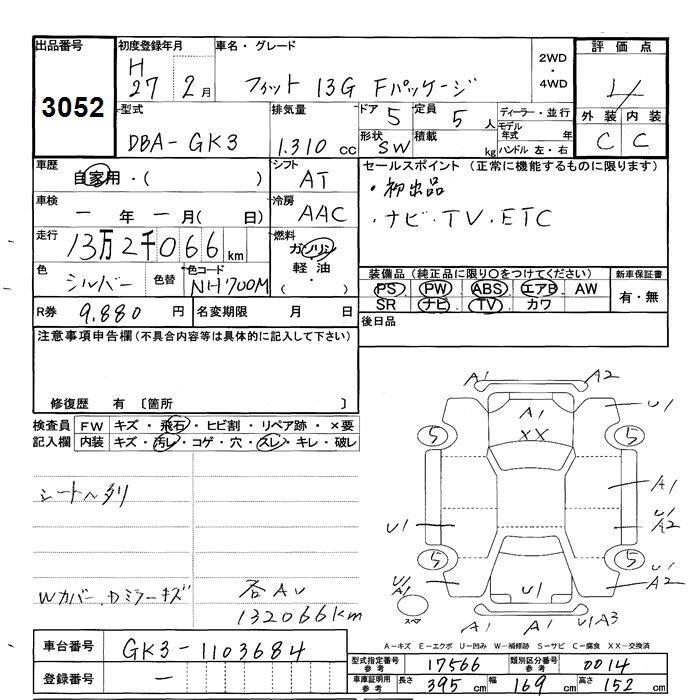 出品番号 3052
初度登録年月 H 27 2月
車名・グレード フィット 13G Fパッケージ
2WD ・ 4WD
評価点 4
外装 内装
C C
型式 DBA-GK3
排気量 1.310 cc
ドア 5 定員 5 人
形状 SW 積載 kg
ディーラー・並行
モデル年式 年
ハンドル 左・右
車歴 自家用・( )
シフト AT
車検 ー 年 ー 月( 日)
冷房 AAC
走行 13万2千066 km
燃料 ガソリン 軽油・( )
色 シルバー 色替 色コード NH700M
R券 9.880 円 名変期限 月 日
セールスポイント (正常に機能するものに限ります)
・初出品
・ナビ・TV・ETC
装備品 (純正品に限り○をつけてください) 新車保証書
PS PW ABS エアB AW 有・無
SR ナビ TV カワ
後日品
注意事項申告欄(不具合内容等は具体的に記入して下さい)
修復歴 有 〔箇所 〕
検査員 FW キズ・飛石・ヒビ割・リペア跡・×要
記入欄 内装 キズ・汚レ・コゲ・穴・スレ・キレ・破レ
シートヘタリ
Wカバー、Dミラーキズ
各AU
132066km
A1 A2
A1 U1
XX
5 5
A1
U1 U1
A2
5 5
U1 A2
U1
A1
スペア
A1 A1 U1A3
A-キズ E-エクボ U-凹み W-補修跡 S-サビ C-腐食 XX-交換済
車台番号 GK3-1103684
登録番号 ー
型式指定番号 参考 17566 類別区分番号 参考 0014
車庫証明用 参考 長さ 395 cm 幅 169 cm 高さ 152 cm